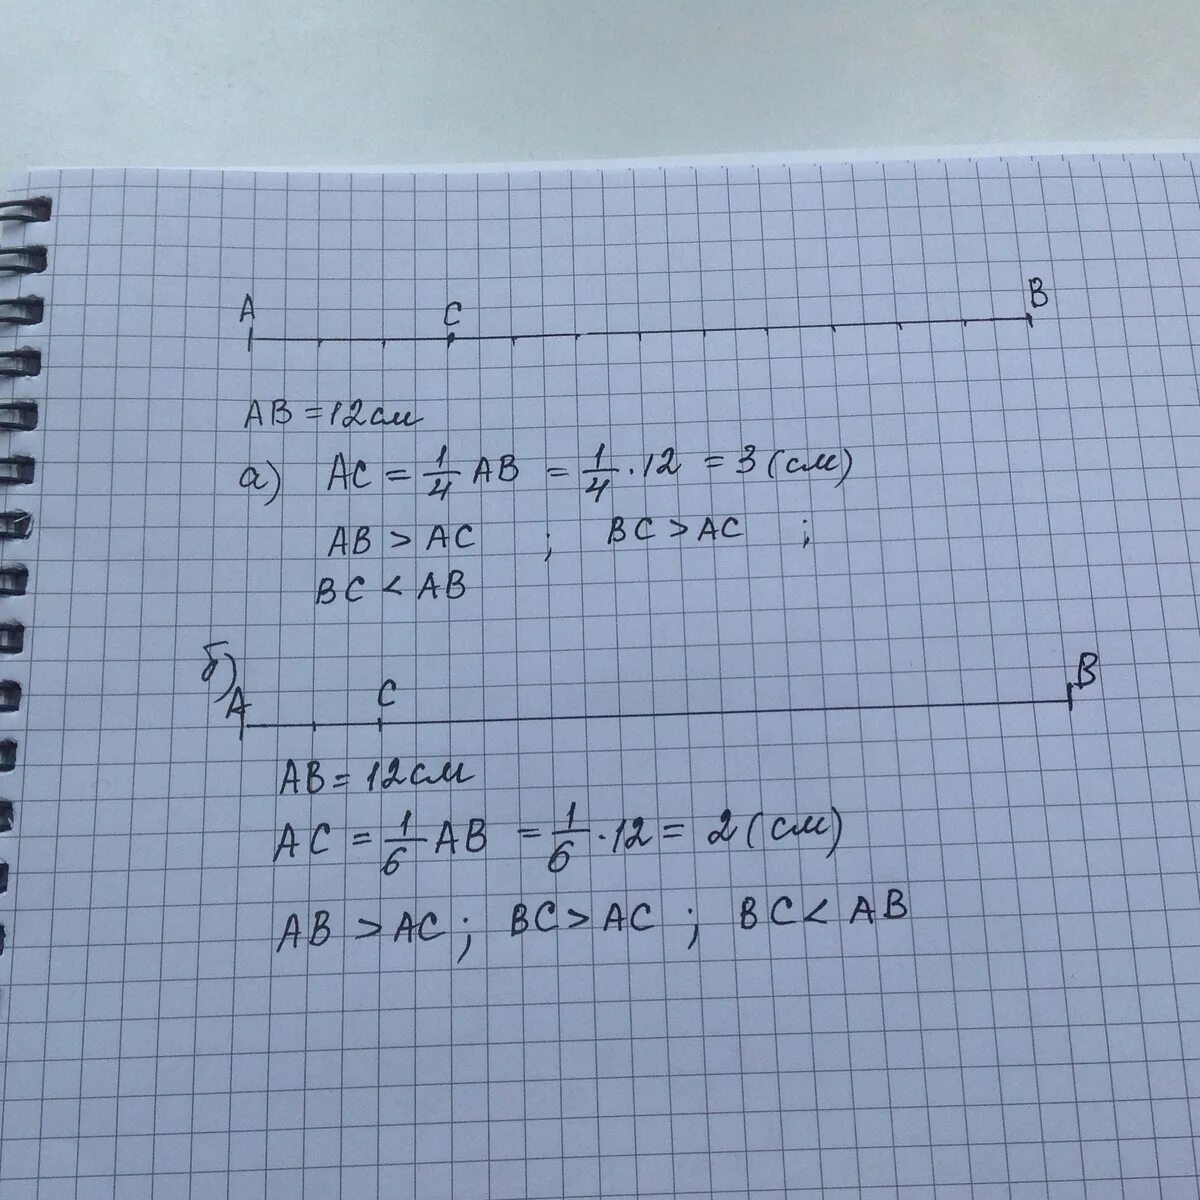 A C B
AB = 12 см
а) AC = 1/4 AB = 1/4 · 12 = 3 (см)
AB > AC ; BC > AC ;
BC < AB
б)
A C B
AB = 12 см
AC = 1/6 AB = 1/6 · 12 = 2 (см)
AB > AC ; BC > AC ; BC < AB